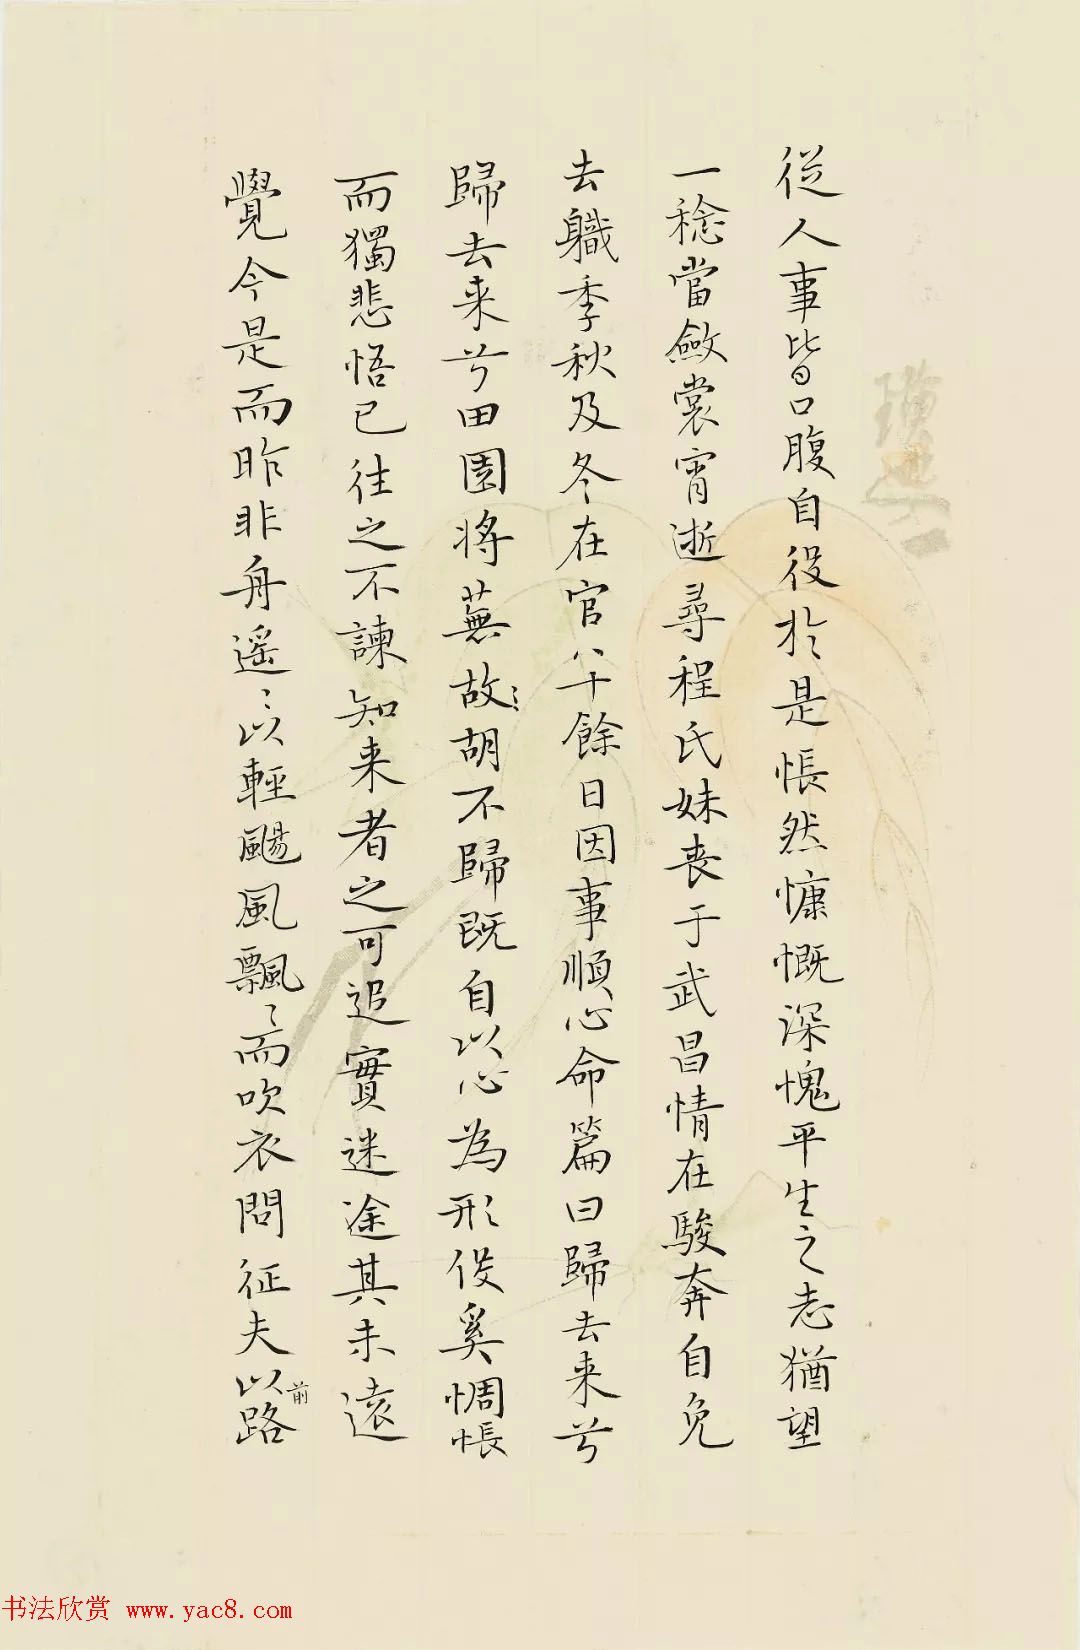 従人事皆口腹自役於是悵然慷慨深愧平生之志猶望
一稔當斂裳宵逝尋程氏妹丧于武昌情在駿奔自免
去軄季秋及冬在官八十餘日因事順心命篇曰歸去来兮
歸去来兮田園将蕪故〻胡不歸既自以心為形役奚惆悵
而獨悲悟已往之不諫知来者之可追實迷途其未遠
覺今是而昨非舟遥〻以輕颺風飄〻而吹衣問征夫以前路
书法欣赏 www.yac8.com